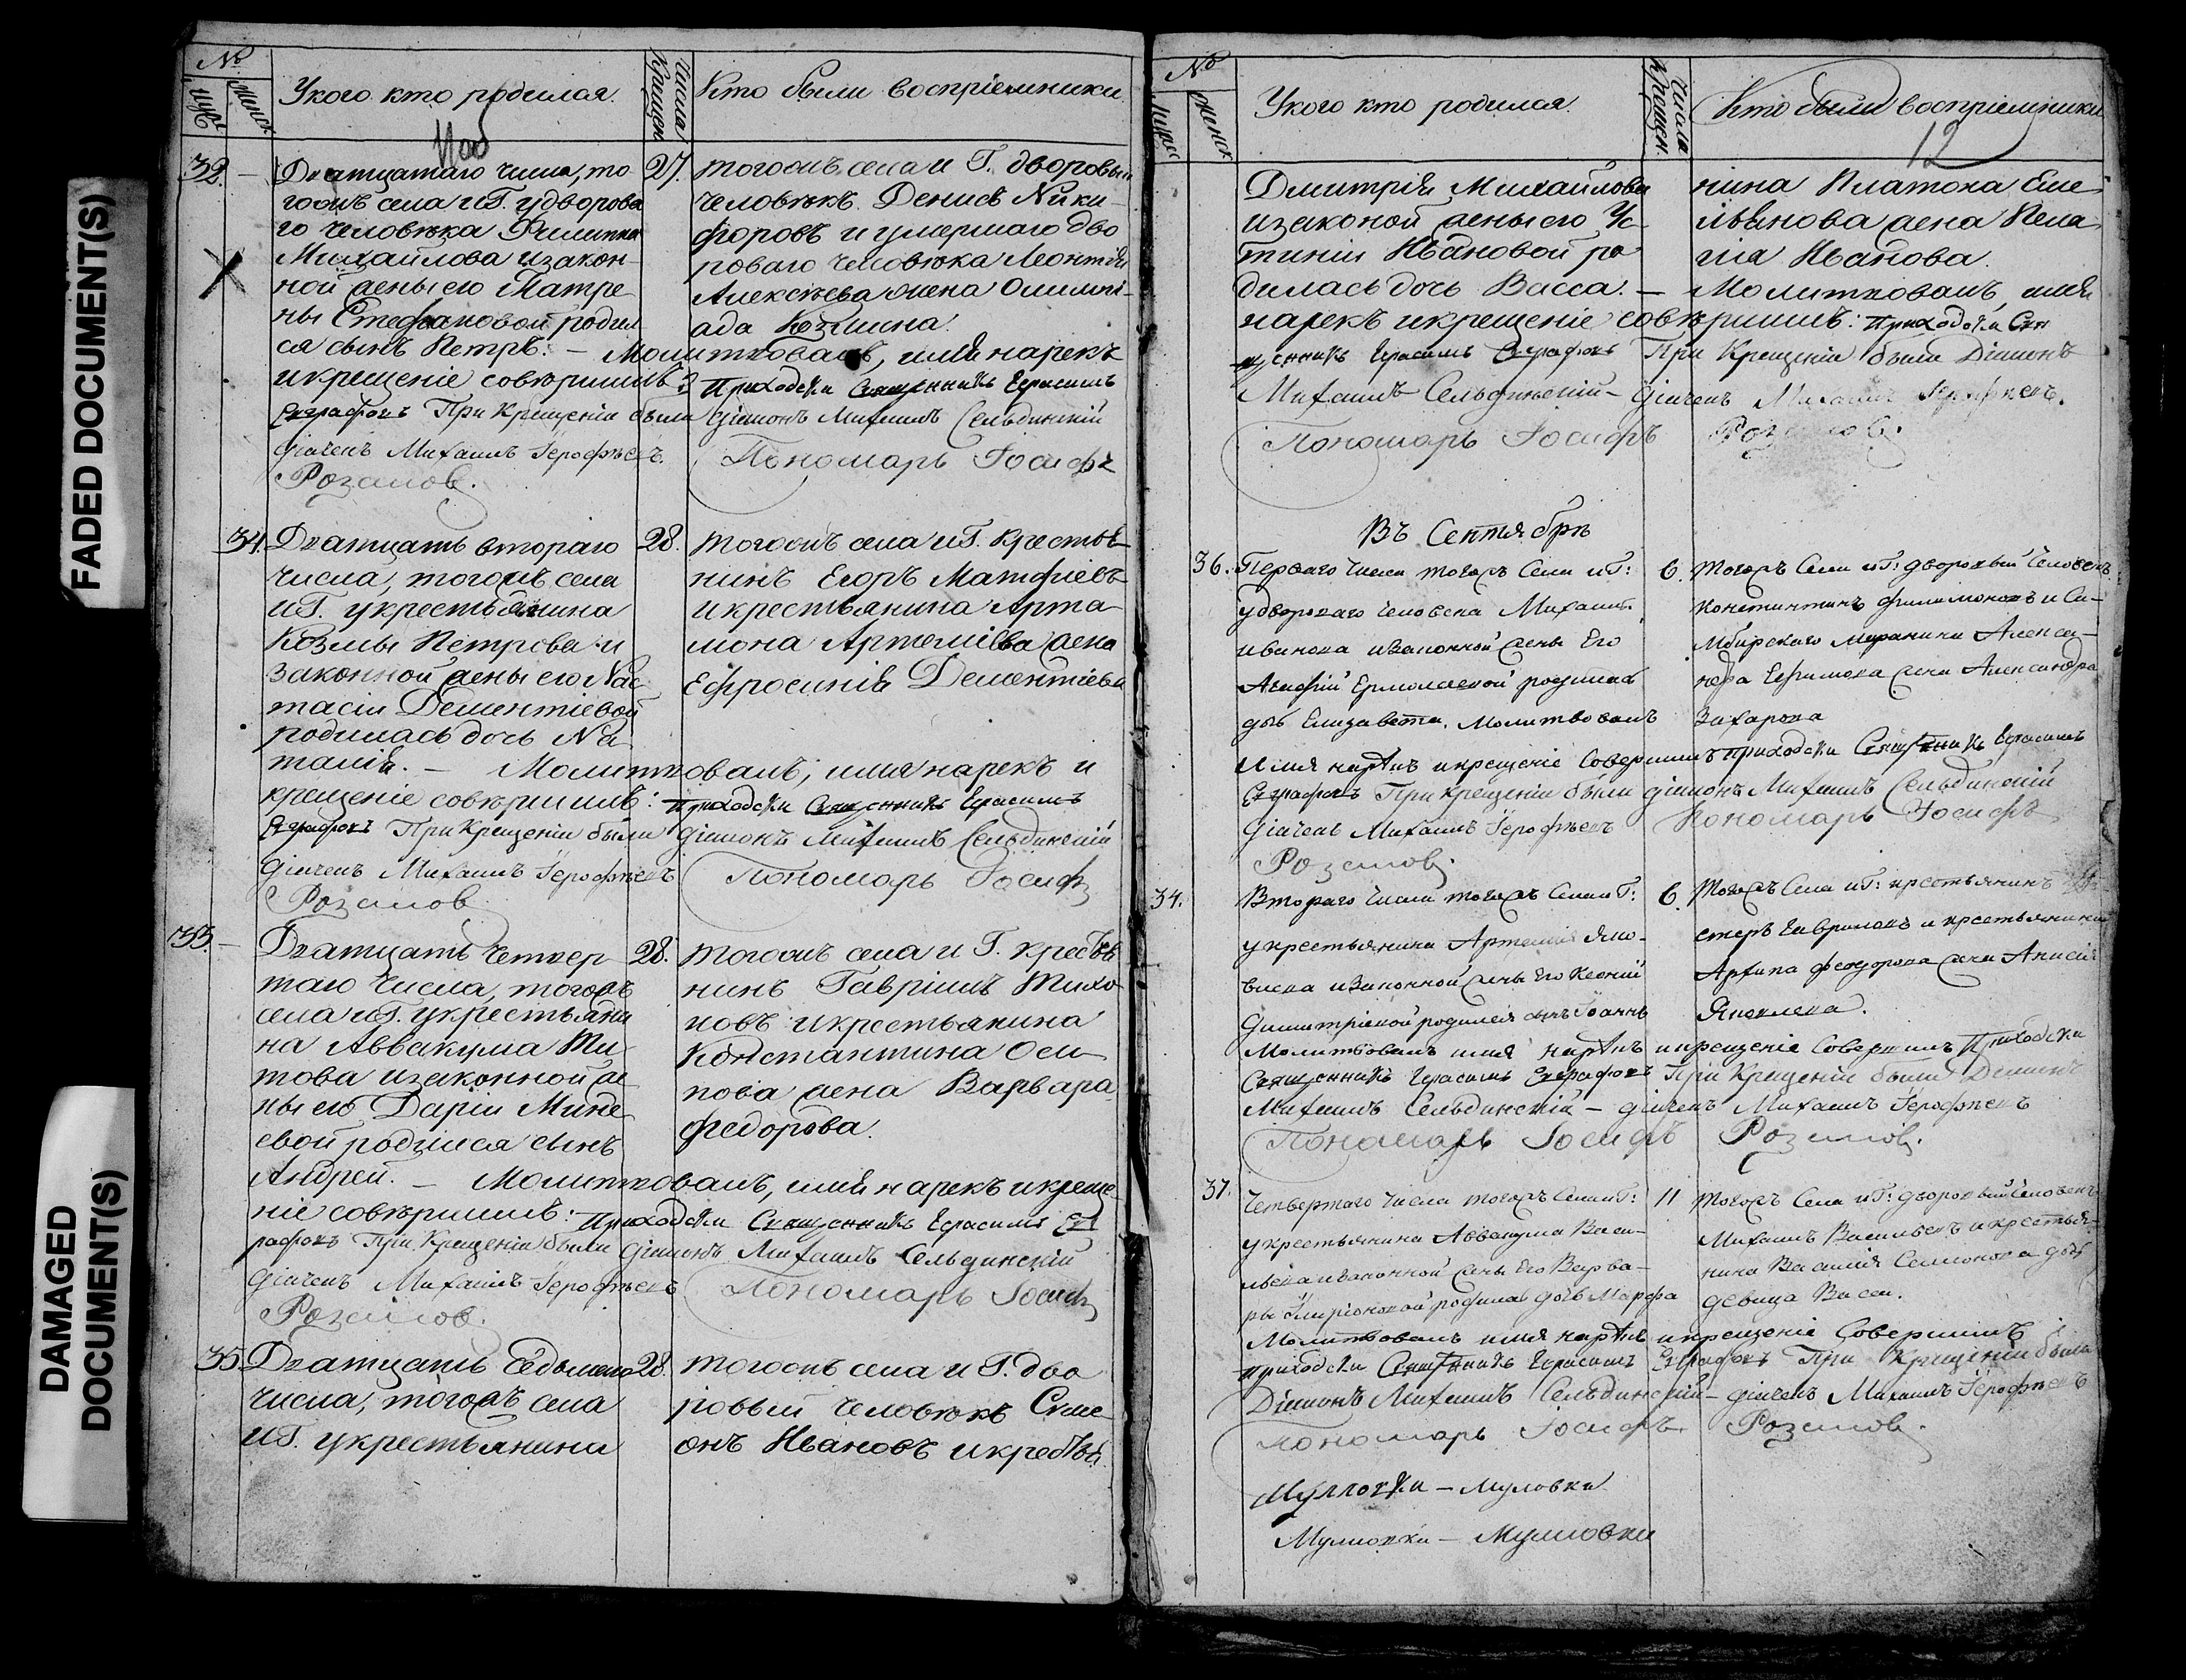 FADED DOCUMENT(S)
DAMAGED
DOCUMENT(S)
№
муж
женск
У кого кто родился.
Числа
Крещен
Кто были воспріемники
32. Дватцатаго числа, то
гожъ села и Г. у дворова
го человѣка Филиппа
Михайлова и закон
ной жены его Матре
ны Стефановой родил
ся сынъ Петръ. — Молитвовалъ, имя нарекъ
и крещеніе совѣршилъ: Приходскій Священникъ Герасимъ
Евграфовъ При Крещеніи были Діаконъ Михаилъ Сельдинскій
Діаченъ Михаилъ Іерофѣевъ. Пономарь Іосифъ
Розановъ.
27. тогожъ села и Г. дворовый
человѣкъ Денисъ Ники
форовъ и умершаго дво
роваго человѣка Леонтія
Алексѣева жена Олимпі
ада Козмина.
34. Дватцать втораго
числа, тогожъ села
и Г. у крестьянина
Козмы Петрова и
законной жены его Нас
тасіи Дементіевой
родилась дочь На
талія. — Молитвовалъ, имя нарекъ и
крещеніе совѣршилъ: Приходскій Священникъ Герасимъ
Евграфовъ При Крещеніи были Діаконъ Михаилъ Сельдинскій
Діаченъ Михаилъ Іерофѣевъ Пономарь Іосифъ
Розановъ
28. тогожъ села и Г. крестья
нинъ Егоръ Матфіевъ
и крестьянина Арта
мона Артеміева жена
Ефросинія Дементіева
33. Дватцать четвер
таго числа, тогожъ
села и Г. у крестьяни
на Аввакума Ти
това и законной же
ны его Даріи Мине
евой родился сынъ
Андрей. — Молитвовалъ, имя нарекъ и креще
ніе совѣршилъ: Приходскій Священникъ Герасимъ Евг
рафовъ При Крещеніи были Діаконъ Михаилъ Сельдинскій
Діаченъ Михаилъ Іерофѣевъ Пономарь Іосифъ
Розановъ.
28. тогожъ села и Г. крестья
нинъ Гавріилъ Тихо
новъ и крестьянина
Константина Оси
пова жена Варвара
Федорова.
35. Дватцать седьмаго
числа, тогожъ села
и Г. у крестьянина
28. тогожъ села и Г. дво
ровый человѣкъ Симе
онъ Ивановъ и крестья
№
женск
У кого кто родился.
Числа
Крещен.
Кто были воспріемники
12
Дмитрія Михайлова
и законой жены его Ус
тиніи Ивановой ро
дилась дочь Васса. — Молитвовалъ, имя
нарекъ и крещеніе совѣршилъ: Приходскій Свя
щенникъ Герасимъ Евграфовъ При Крещеніи были Діаконъ
Михаилъ Сельдинскій — Діаченъ Михаилъ Іерофѣевъ.
Пономарь Іосифъ Розановъ.
нина Платона Еме
льянова жена Пела
гія Иванова.
Въ Сентябрѣ
36. Перваго числа тогожъ Села и Г:
у двороваго человека Михаила
Иванова и законной жены Его
Агафіи Ермолаевой родилась
дочь Елизавета. Молитвовалъ
Имя нарекъ и крещеніе Совершилъ приходскій Священникъ Герасимъ
Евграфовъ При Крещеніи были діаконъ Михаилъ Сельдинскій
Діаченъ Михаилъ Іерофѣевъ Пономарь Іосифъ
Розановъ.
6. тогожъ Села и Г: дворовый Человекъ
Константинъ Филимоновъ и Си—
мбирскаго мещанина Алекса—
ндра Ефимова жена Александра
Захарова
34. Втораго числа тогожъ Села и Г:
у крестьянина Артемія Яко—
влева и законной жены Его Ксеніи
Димитріевой родился сынъ Іоаннъ
Молитвовалъ имя нарекъ и крещеніе Совершилъ Приходскій
Священникъ Герасимъ Евграфовъ При Крещеніи были Діаконъ
Михаилъ Сельдинскій — діаченъ Михаилъ Іерофѣевъ
Пономарь Іосифъ Розановъ.
6. Тогожъ Села и Г: крестьянинъ
Гавриловъ и крестьянина
Архипа Федорова жена Анисія
Яковлева.
37. Четвертаго числа тогожъ Села и Г:
у крестьянина Аввакума Васи—
льева и законной жены Его Варва—
ры родилась дочь Марфа
Молитвовалъ имя нарекъ и крещеніе Совершилъ
приходскій Священникъ Герасимъ Евграфовъ При Крещеніи были
Діаконъ Михаилъ Сельдинскій — діаченъ Михаилъ Іерофѣевъ
Пономарь Іосифъ. Розановъ.
11 тогожъ Села и Г: дворовый человекъ
Михаилъ Васильевъ и крестья—
нина Василія Семенова дочь
девица Васса.
Мулловки — Муловки
Мулловки — Мулловки